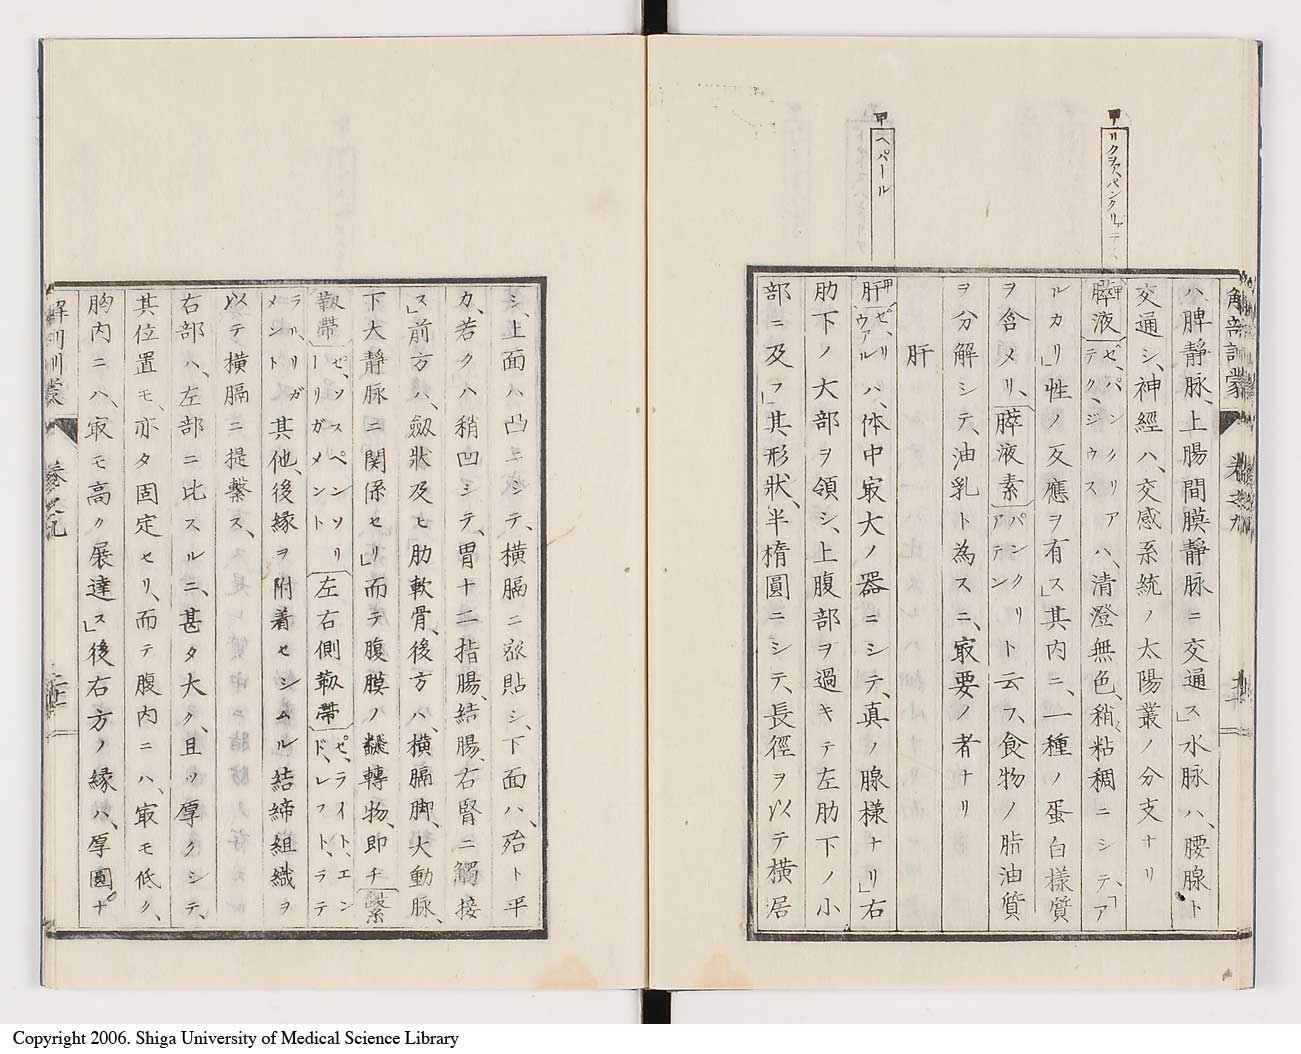 解剖訓蒙 卷之九
甲 リクヲス、パンクリアテ
ハ、脾靜脉、上腸間膜靜脉ニ交通ス」水脉ハ、腰腺ト
交通シ、神經ハ、交感系統ノ太陽叢ノ分支ナリ
甲膵液 ゼ、パンクリア テク、ジウス ハ、清澄無色、稍粘稠ニシテ、ア
ルカリ」性ノ反應ヲ有ス」其内ニ、一種ノ蛋白様質
ヲ含メリ、膵液素 パンクリ アテン ト云フ、食物ノ脂油質
ヲ分解シテ、油乳ト為スニ、㝡要ノ者ナリ
肝
甲 ヘパール
甲肝 ゼ、リ ウアル ハ、体中㝡大ノ器ニシテ、真ノ腺様ナリ」右
肋下ノ大部ヲ領シ、上腹部ヲ過キテ左肋下ノ小
部ニ及フ」其形狀、半楕圓ニシテ、長徑ヲ以テ横居
シ、上面ハ凸ニシテ、横膈ニ密貼シ、下面ハ、殆ト平
カ、若クハ稍凹シテ、胃十二指腸、結腸、右腎ニ觸接
ス」前方ハ、劔狀及ヒ肋軟骨、後方ハ、横膈脚、大動脉、
下大靜脉ニ関係セリ」而テ腹膜ノ飜轉物、即チ繫
靱帶 ゼ、ソスペンソリ ーリガメント 左右側靱帶 ゼ、ライト、エン ド、レフト、ラテ
ラル、リガ メント 其他、後緣ヲ附着セシムル結締組織ヲ
以テ横膈ニ提繫ス、
右部ハ、左部ニ比スルニ、甚タ大ク、且ツ厚クシテ、
其位置モ、亦タ固定セリ、而テ腹内ニハ、㝡モ低ク、
胸内ニハ、㝡モ高ク展達ス」後右方ノ緣ハ、厚圓ナ
解剖訓蒙 卷之九
Copyright 2006. Shiga University of Medical Science Library